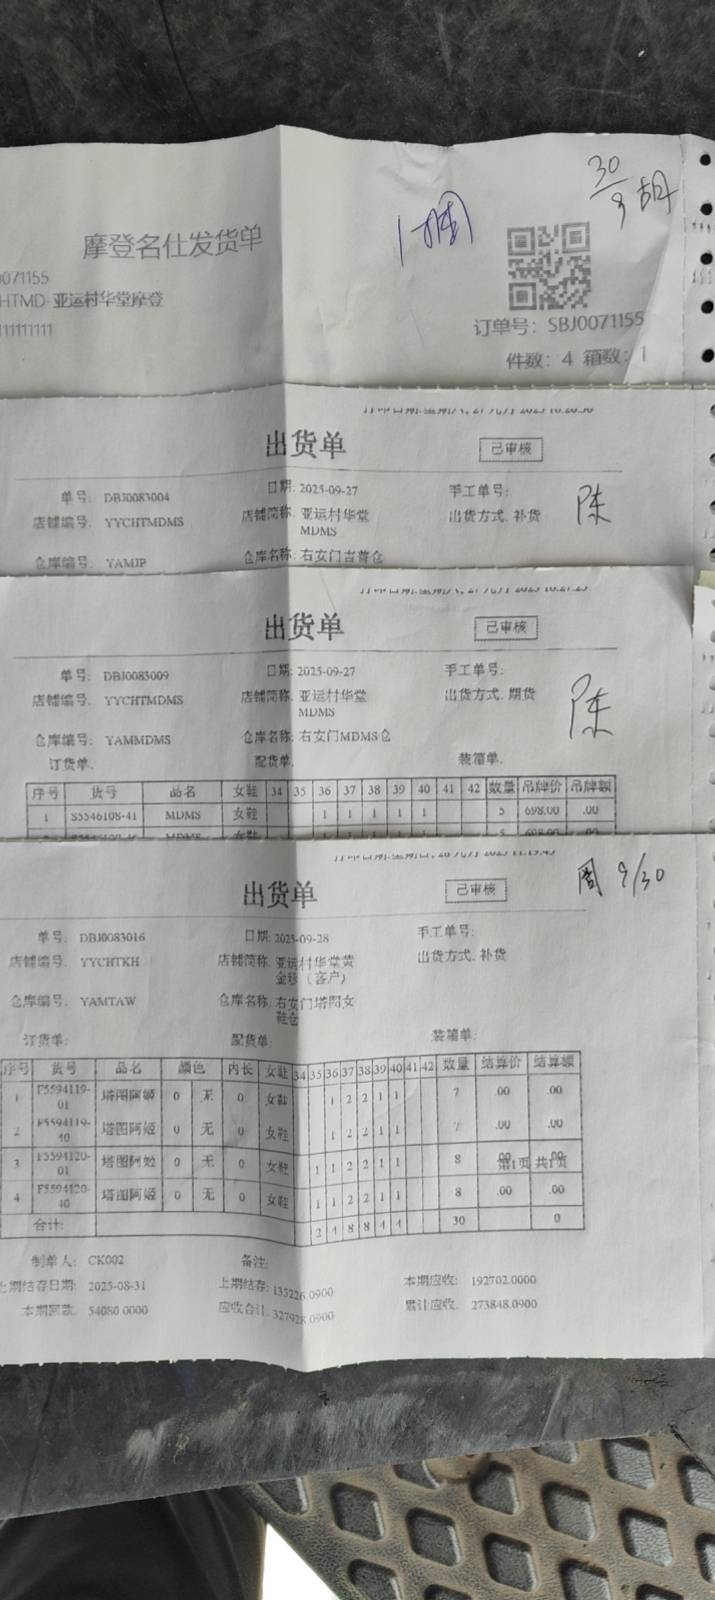 30/9 胡
1捆
摩登名仕发货单
0071155
HTMD-亚运村华堂摩登
111111111
订单号: SBJ0071155
件数: 4 箱数: 1
出货单 已审核
单号: DBJ0083004 日期: 2025-09-27 手工单号:
陈
店铺编号: YYCHTMDMS 店铺简称: 亚运村华堂 出货方式: 补货
MDMS
仓库编号: YAMJP 仓库名称: 右安门吉普仓
出货单 已审核
单号: DBJ0083009 日期: 2025-09-27 手工单号:
陈
店铺编号: YYCHTMDMS 店铺简称: 亚运村华堂 出货方式: 期货
MDMS
仓库编号: YAMMDMS 仓库名称: 右安门MDMS仓
订货单: 配货单: 装箱单:
序号 货号 品名 女鞋 34 35 36 37 38 39 40 41 42 数量 吊牌价 吊牌额
1 S5546108-41 MDMS 女鞋 1 1 1 1 1 5 698.00 .00
周 9/30
出货单 已审核
单号: DBJ0083016 日期: 2025-09-28 手工单号:
店铺编号: YYCHTKH 店铺简称: 亚运村华堂黄 出货方式: 补货
金珍（客户）
仓库编号: YAMTAW 仓库名称: 右安门塔图女
鞋仓
订货单: 配货单: 装箱单:
序号 货号 品名 颜色 内长 女鞋 34 35 36 37 38 39 40 41 42 数量 结算价 结算额
1 F5594119-01 塔图阿姬 0 无 0 女鞋 1 2 2 1 1 7 .00 .00
2 F5594119-40 塔图阿姬 0 无 0 女鞋 1 2 2 1 1 7 .00 .00
3 F5594120-01 塔图阿姬 0 无 0 女鞋 1 1 2 2 1 1 8 .00 .00
第1页 共1页
4 F5594120-40 塔图阿姬 0 无 0 女鞋 1 1 2 2 1 1 8 .00 .00
合计: 2 4 8 8 4 4 30 0
制单人: CK002 备注:
上期结存日期: 2025-08-31 上期结存: 135226.0900 本期应收: 192702.0000
本期回款: 54080.0000 应收合计: 327928.0900 累计应收: 273848.0900